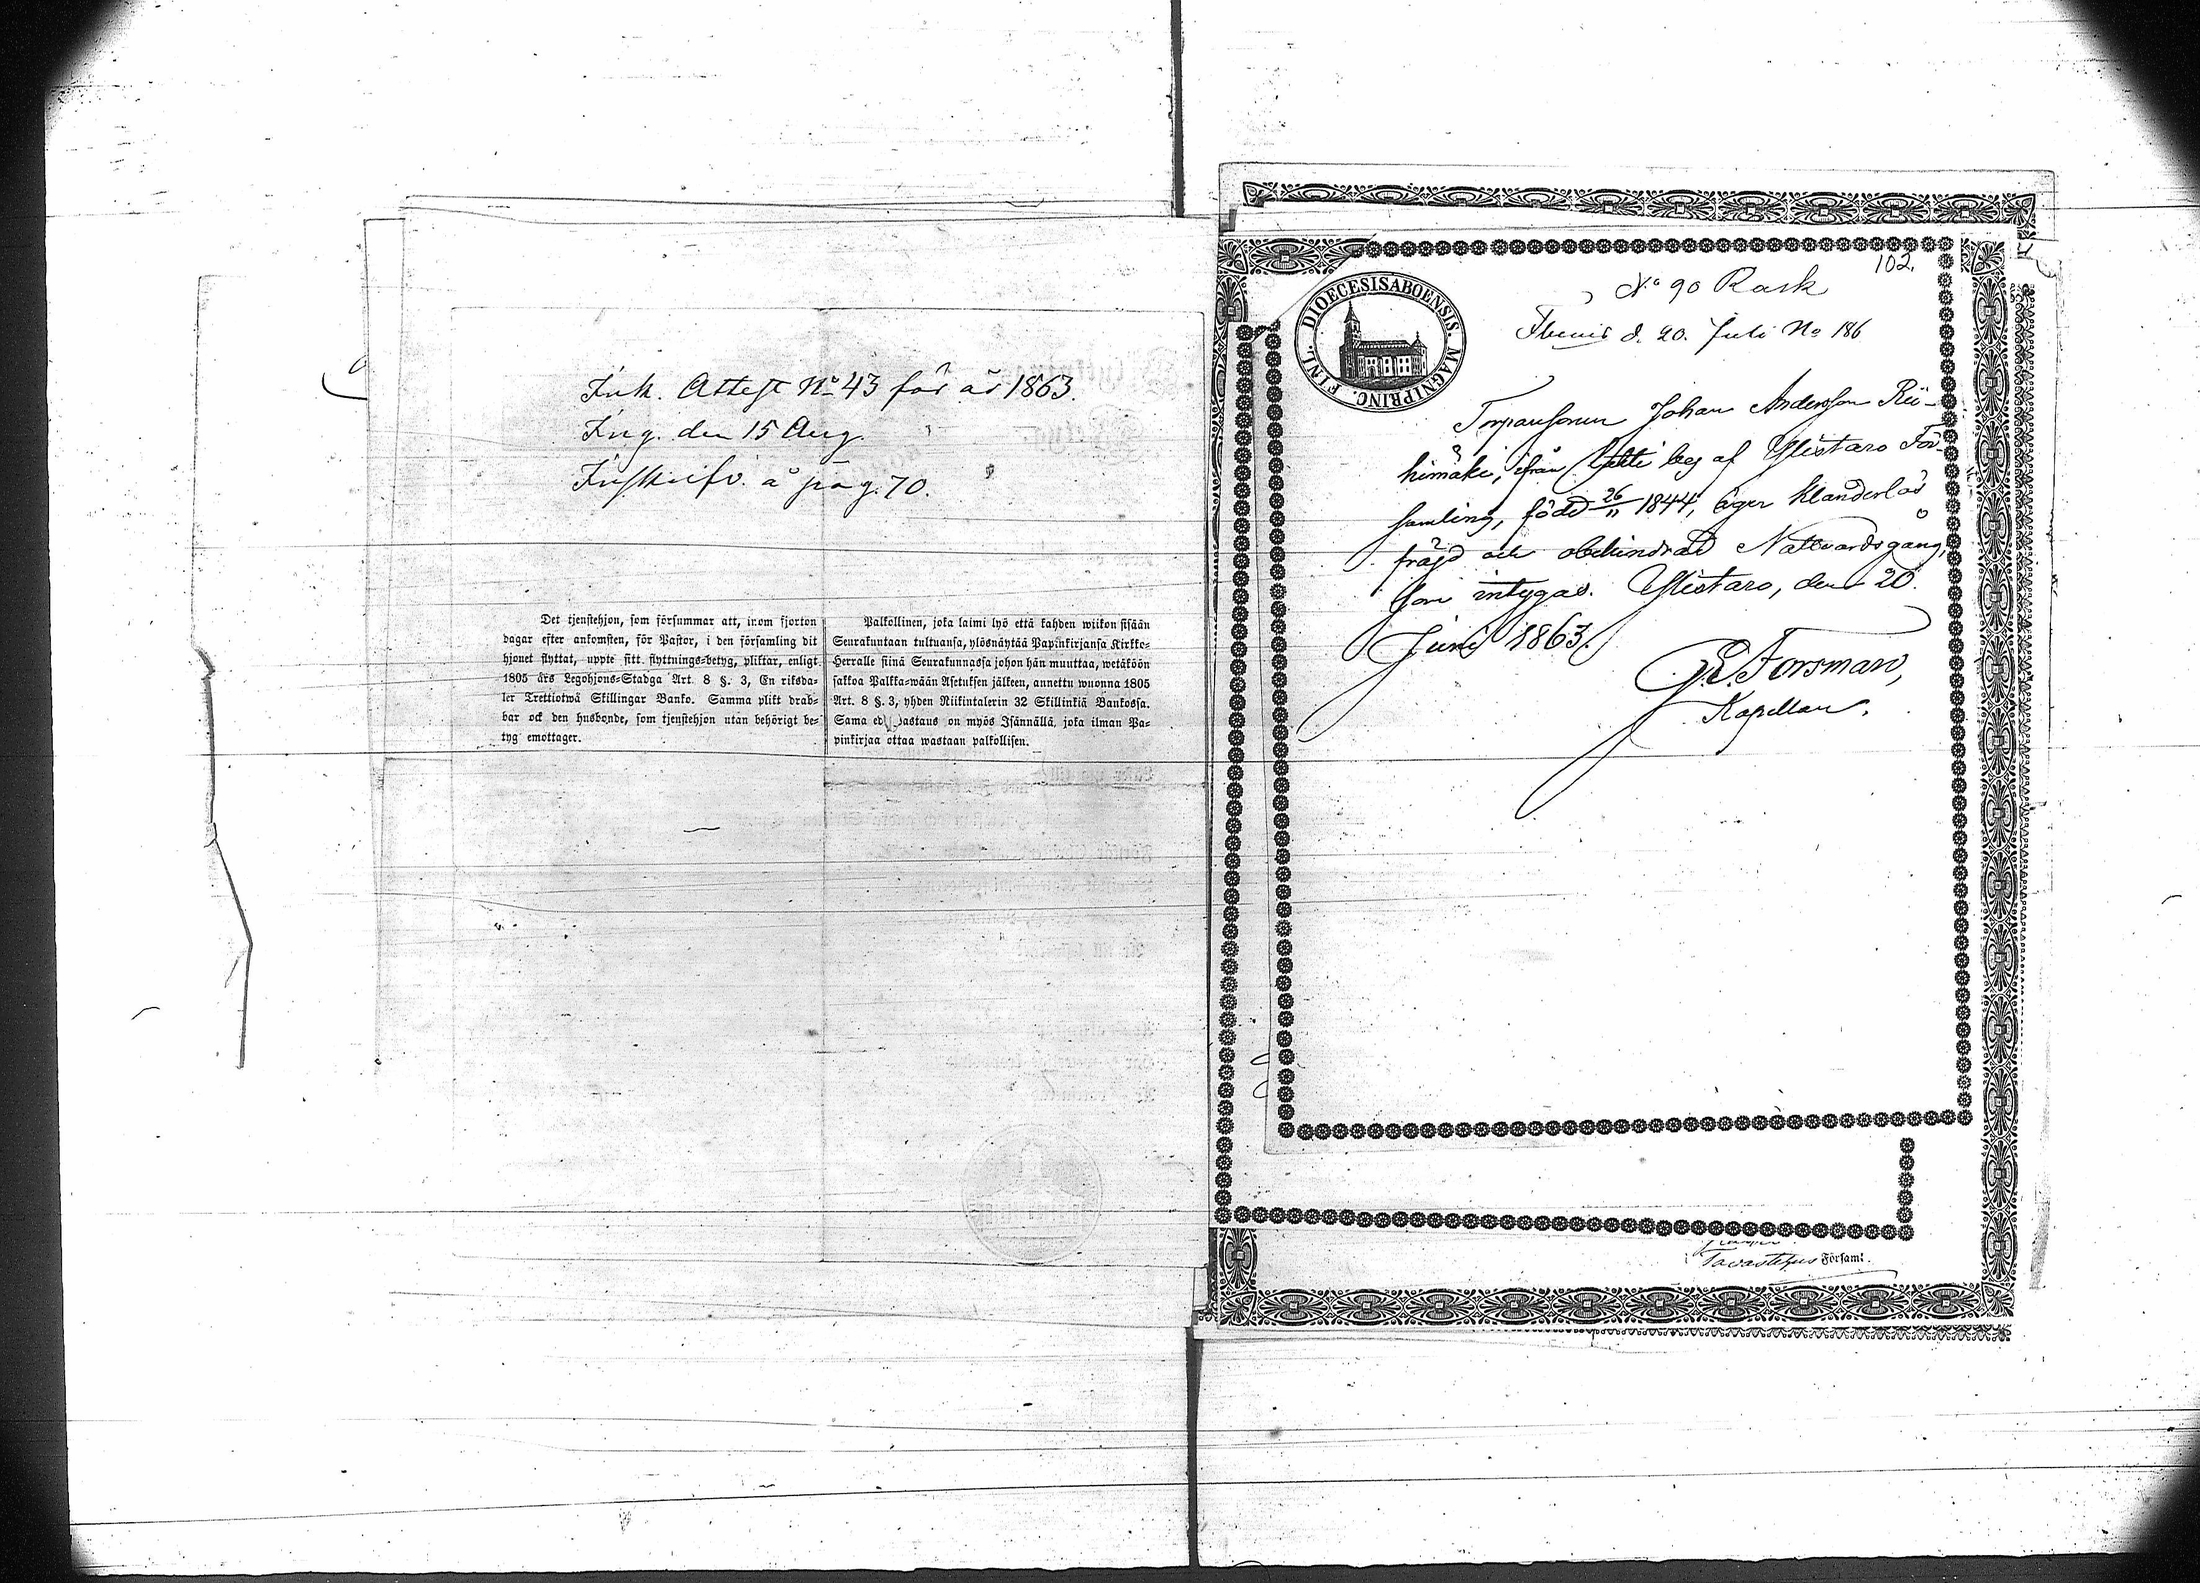 Ink. Attest No 43 för år 1863.
Ing. den 15 Aug.
Inskrifv. å pag. 70.
Det tjenstehjon, som försummar att, inom fjorton
dagar efter ankomsten, för Pastor, i den församling dit
hjonet flyttat, uppte sitt flyttnings-betyg, pliktar, enligt
1805 års Legohjons-Stadga Art. 8 §. 3, En riksda-
ler Trettiotwå Skillingar Banko. Samma plikt drab-
bar ock den husbonde, som tjenstehjon utan behörigt be-
tyg emottager.
Palkollinen, joka laimi lyö että kahden wiikon sisään
Seurakuntaan tultuansa, ylösnäytää Papinkirjansa Kirkko-
Herralle siinä Seurakunnassa johon hän muuttaa, wetäköön
sakkoa Palkka-wään Asetuksen jälkeen, annettu wuonna 1805
Art. 8 §. 3, yhden Riikintalerin 32 Skillinkiä Bankossa.
Sama edastaus on myös Isännällä, joka ilman Pa-
pinkirjaa ottaa wastaan palkollisen.
102.
No 90 Rask
d. 20. Juli No 186
DIOECESISABOENSIS. MAGNIPRINC. FINL.
Torparsonen Johan Andersson Rii-
himäki, från by af Ylistaro För-
samling, född 26/11 1844, äger klanderlös
fräjd och obehindrad Nattvardsgång,
som intygas. Ylistaro, den 20
Juni 1863.
G. E. Forsman,
Kapellan.
Tavastehus Församl.